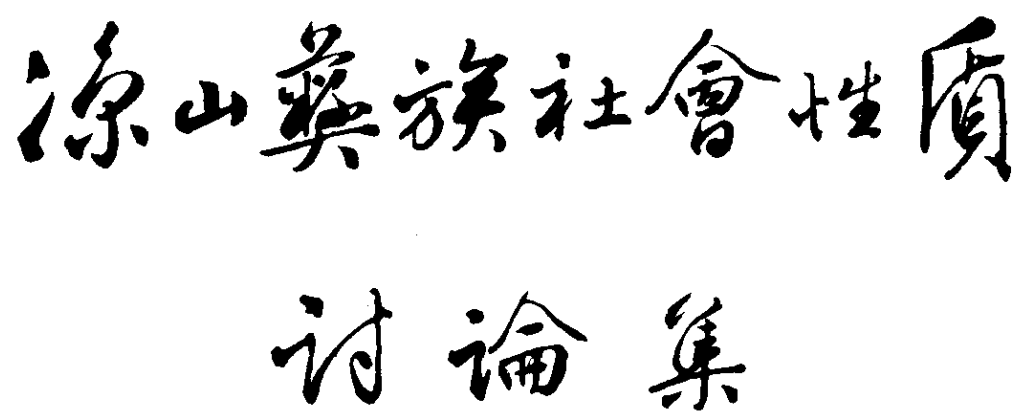 凉山彝族社會性质
討論集